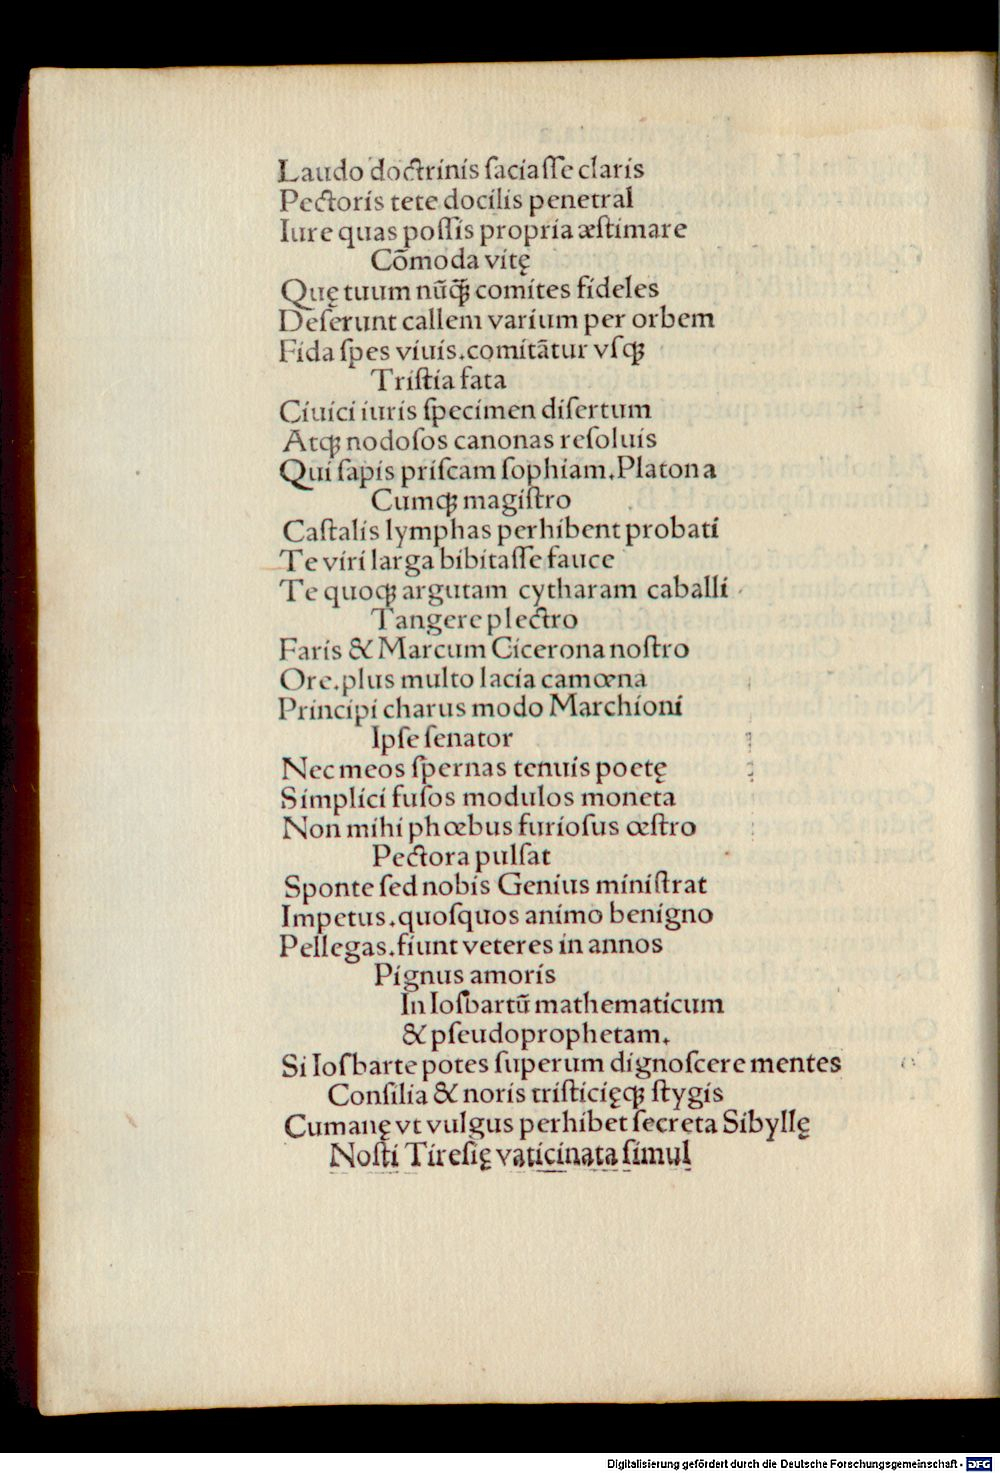 Laudo doctrinis ſaciaſſe claris
Pectoris tete docilis penetral
Iure quas poſſis propria æſtimare
Cõmoda vitę
Quę tuum nũꝙ̃ comites fideles
Deſerunt callem varium per orbem
Fida ſpes viuis.comitãtur vſqꝫ
Triſtia fata
Ciuici iuris ſpecimen diſertum
Atqꝫ nodoſos canonas reſoluis
Qui ſapis priſcam ſophiam.Platona
Cumqꝫ magiſtro
Caſtalis lymphas perhibent probati
Te viri larga bibitaſſe fauce
Te quoqꝫ argutam cytharam caballi
Tangere plectro
Faris & Marcum Cicerona noſtro
Ore.plus multo lacia camœna
Principi charus modo Marchioni
Ipſe ſenator
Nec meos ſpernas tenuis poetę
Simplici fuſos modulos moneta
Non mihi phœbus furioſus œſtro
Pectora pulſat
Sponte ſed nobis Genius miniſtrat
Impetus.quoſquos animo benigno
Pellegas.fiunt veteres in annos
Pignus amoris
In Ioſbartũ mathematicum
& pſeudoprophetam.
Si Ioſbarte potes ſuperum dignoſcere mentes
Conſilia & noris triſticięqꝫ ſtygis
Cumanę vt vulgus perhibet ſecreta Sibyllę
Noſti Tireſię vaticinata ſimul
Digitalisierung gefördert durch die Deutsche Forschungsgemeinschaft - DFG